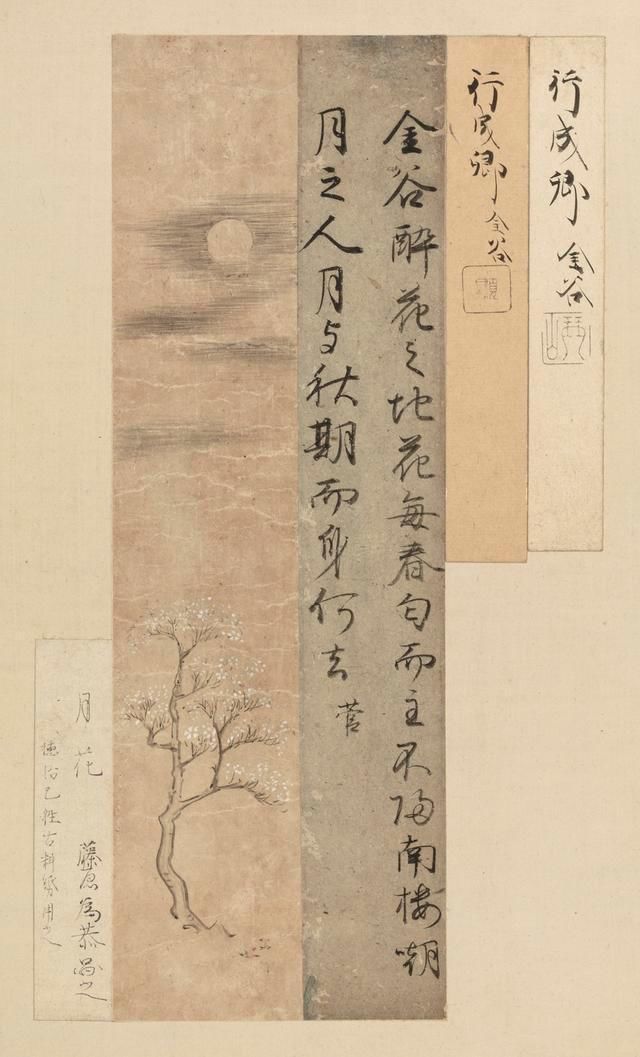 行成卿 金谷
行成卿 金谷
金谷酔花之地花毎春匂而主不帰南楼嘲
月之人月与秋期而身何去 菅
月花 藤原為恭
古料紙用之